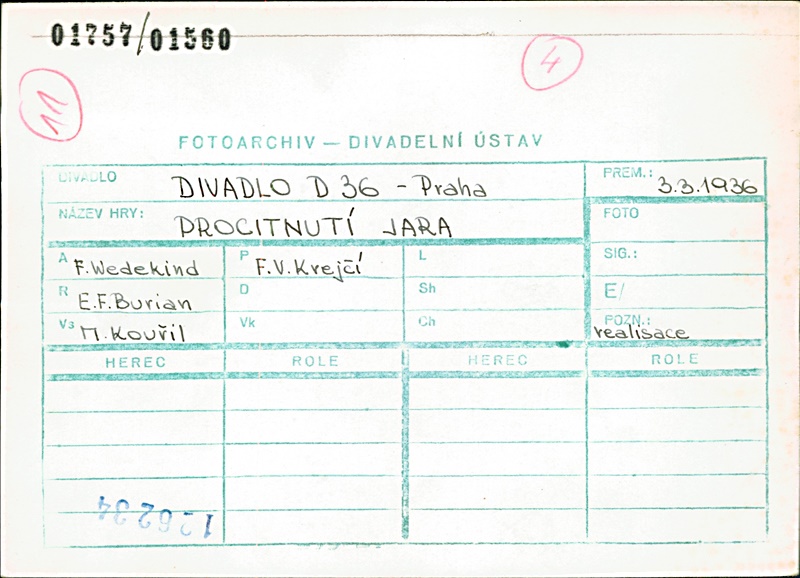 01757/01560
11
4
FOTOARCHIV — DIVADELNÍ ÚSTAV
DIVADLO DIVADLO D 36 - Praha
PREM.: 3.3.1936
NÁZEV HRY: PROCITNUTÍ JARA
FOTO
A F. Wedekind P F.V. Krejčí L
SIG.:
R E.F. Burian D Sh
E/
V M. Kouřil Vk Ch
POZN.: realisace
HEREC ROLE HEREC ROLE